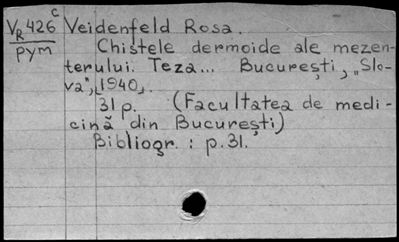 V_R 426^c Veidenfeld Rosa.
pym Chistele dermoide ale mezen-
terului. Teza... București, „Slo-
va", [1940].
31 p. (Facultatea de medi-
cină din București)
Bibliogr. : p. 31.